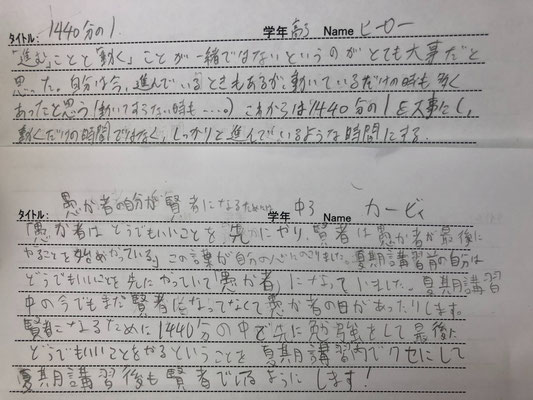 タイトル: 1440分の1 学年 高3 Name ヒーロー
「進む」ことと「動く」ことが一緒ではないというのがとても大事だと
思った。自分は今、進んでいるときもあるが、動いているだけの時も多く
あったと思う(動いてすらない時も……。) これからは1440分の1を大事にし、
動くだけの時間ではなく、しっかりと進んでいるような時間にする。
タイトル: 愚か者の自分が賢者になるためには 学年 中3 Name カービィ
「愚か者はどうでもいいことを先にやり、賢者は愚か者が最後に
やることを始めやっている」この言葉が自分の心にのこりました。夏期講習前の自分は
どうでもいいことを先にやっていて「愚か者」になっていました。夏期講習
中の今でもまだ賢者になってなくて愚か者の日があったりします。
賢者になるために1440分の中で先に勉強をして最後に
どうでもいいことをやるということを夏期講習内でクセにして
夏期講習後も賢者でいるようにします!